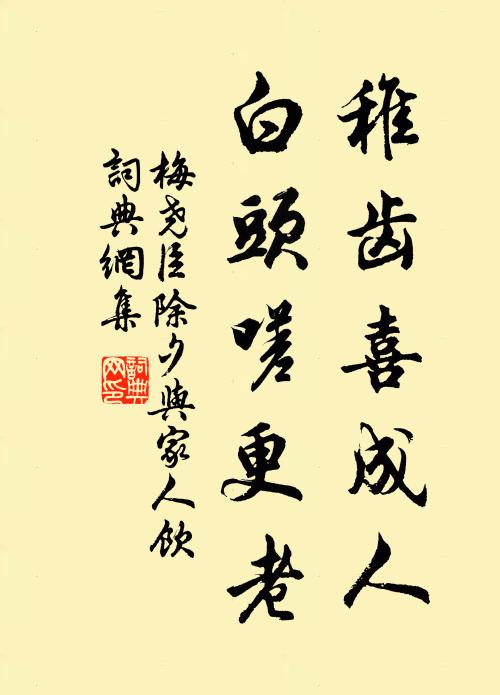 稚齿喜成人
白頭嗟更老
梅尭臣除夕與家人飲
詞典網集
詞典网印